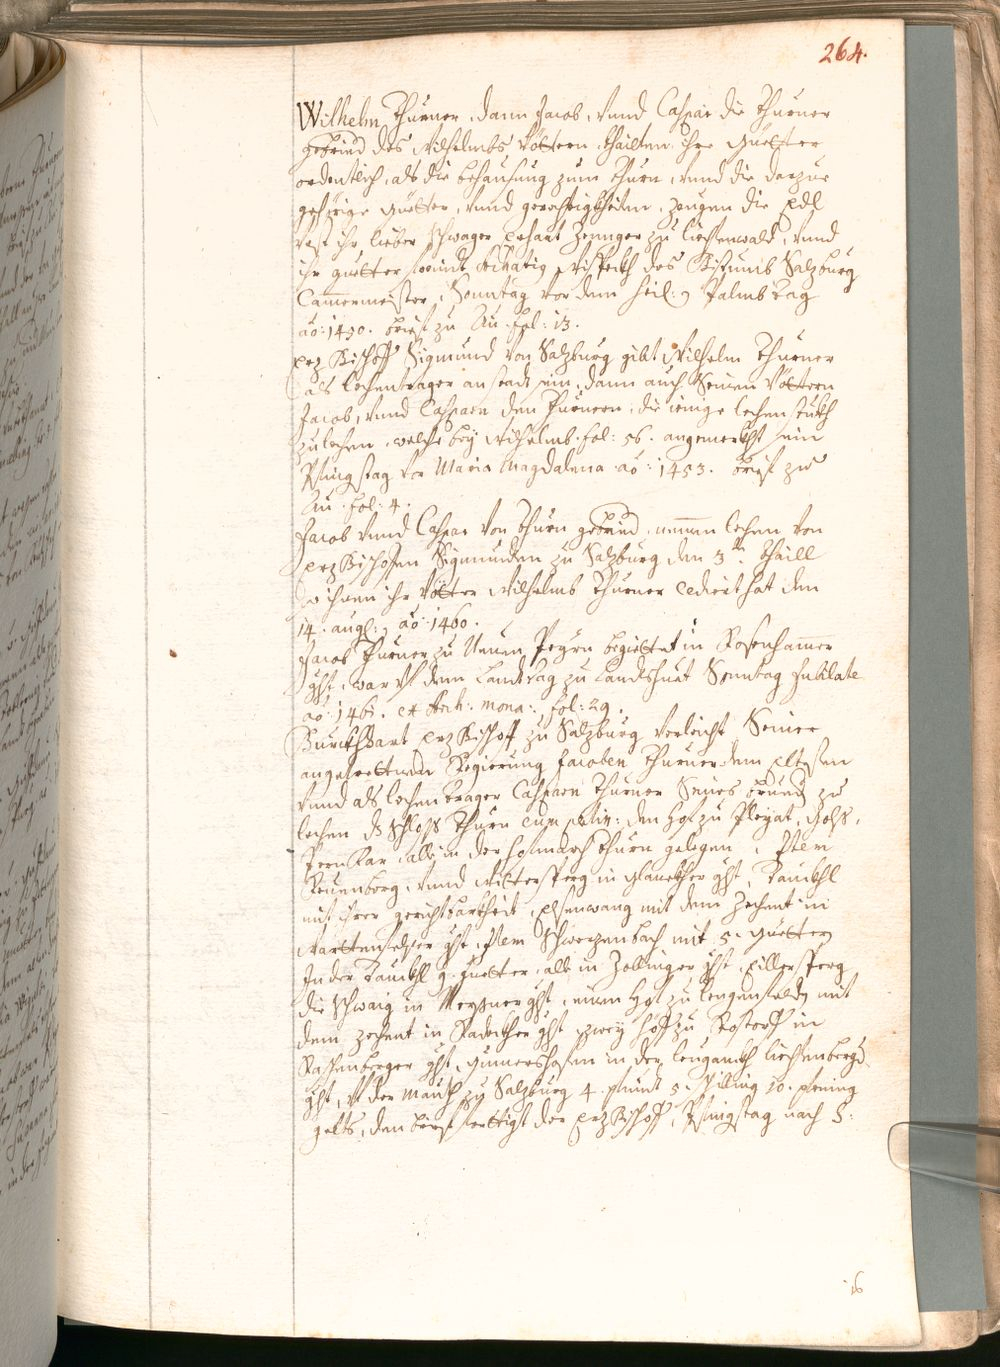 264.
Wilhelm Thurner, dann Jacob, vnnd Caspar die Thurner
gebrüed des Wilhelmbs Vöttern, thailten ihre Guetter
ordentlich, als die behausung zum Thurn, vnnd die darzue
gehörige Guetter, vnnd gerechtigkheiten, zeugen die Edl
vest ihr lieber schwager Erhart Zennger zu liechtenwald, vnnd
ihr guetter freundt Wispekh des Bistumb Salzburg
Cammermeister, Sonntag vor dem heil: Palmb tag
ao: 1450. brief zu Au. fol: 13.
Erz Bischoff Sigmund von Salzburg gibt Wilhelm Thurner
als lechentrager anstadt sein, dann auch Seinen Vöttern
Jacob, vnnd Casparn den Turnern, die ienige lechen stukh
zulechen, welche bey Wilhelmb. fol: 56. angemerkht sein
Pfingstag vor Maria Magdalena ao: 1453. brief zu
Au. fol: 4.
Jacob vnnd Caspar von Thurn gebrüed, nemmen lechen von
Erz Bischofen Sigmunden zu Salzburg den 3ten thaill
so ihnen ihr Vötter Wilhelmb Thurner cediert hat den
14. aug: ao: 1460.
Jacob Turner zu Neuen Peyrn begüettet in Rosenhamer
ght, war vf dem Landtag zu Landtshuet Sonntag Jubilate
ao: 1461. ex Arch: mona: fol: 29.
Burckhart Erz Bischoff zu Salzburg verleicht Seiner
angetrettnen Regierung Jacoben Thurner dem Eltesten
vnnd als lechentrager Casparn Thurner Seines brueds zu
lechen ds Schloss Thurn cum den Hof zu Pleyat, Gols,
alls in der hofmarch Thurn gelegen, Item
vnnd Wiltersperg in ght, Taukhl
mit ihrer gerichtbarkheit, Elsenwang mit dem Zechent in
Warttenfelser ght, Item Schwarzenbach mit 5. Guetter
In der Taukhl 9. guetter, alls in Zollinger ght,
die schwaig in ght, einen Hof zu lengenfeldt mit
dem zechent in Radekher ght, zwey höf zu in
Raschenberger ght, in der liechtenberg
ght, vf der Mauth zu Salzburg 4. pfundt 5. schilling 20. pfening
gelts, den brief fertigt der Erz Bischoff, Pfingstag nach S: